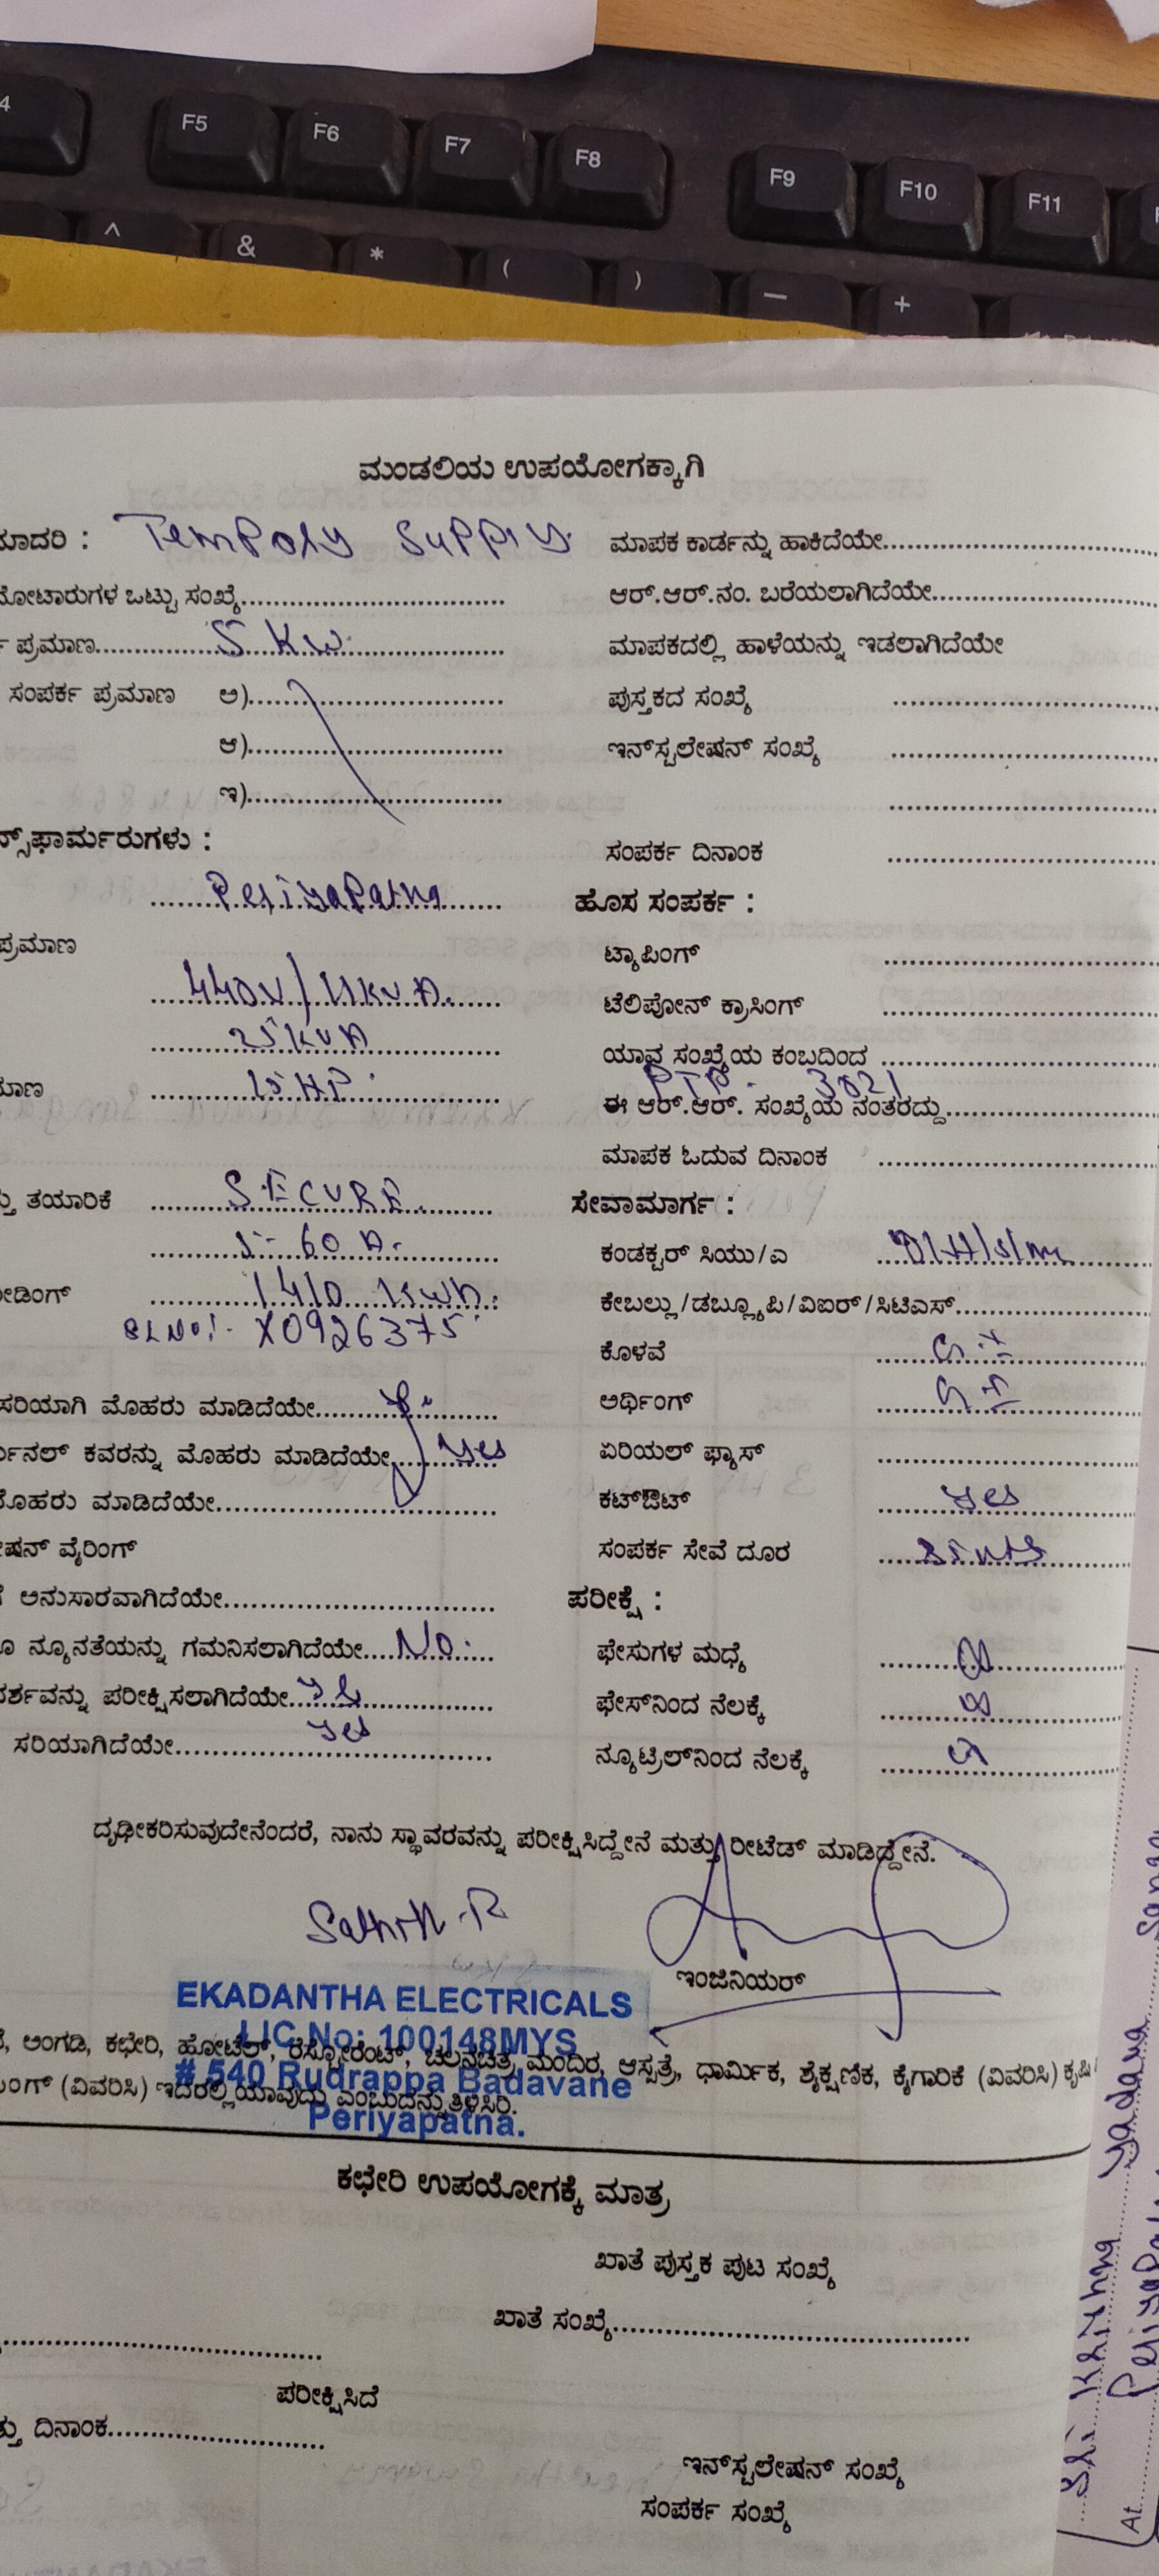 4 F5 F6 F7 F8 F9 F10 F11 F
^ & * ( ) — +
ಮಂಡಲಿಯ ಉಪಯೋಗಕ್ಕಾಗಿ
ಮಾದರಿ : Tempoly Supply
ಮೋಟಾರುಗಳ ಒಟ್ಟು ಸಂಖ್ಯೆ
ಪ್ರಮಾಣ 5 KW
ಸಂಪರ್ಕ ಪ್ರಮಾಣ ಅ)
ಆ)
ಇ)
ನ್ಸ್‌ಫಾರ್ಮರುಗಳು :
PeriyaPatna
ಪ್ರಮಾಣ
440V/11KVA.
25KVA
ಮಾಣ 15HP.
ತ್ತು ತಯಾರಿಕೆ SECURE
5-60 A.
ೀಡಿಂಗ್ 1410 KWh.
SLNO:- X0926375
ಸರಿಯಾಗಿ ಮೊಹರು ಮಾಡಿದೆಯೇ
ರ್ಮಿನಲ್ ಕವರನ್ನು ಮೊಹರು ಮಾಡಿದೆಯೇ yes
ಮೊಹರು ಮಾಡಿದೆಯೇ
ೇಷನ್ ವೈರಿಂಗ್
ೆ ಅನುಸಾರವಾಗಿದೆಯೇ
ನ್ಯೂನತೆಯನ್ನು ಗಮನಿಸಲಾಗಿದೆಯೇ No.
ದರ್ಶವನ್ನು ಪರೀಕ್ಷಿಸಲಾಗಿದೆಯೇ yes
ಸರಿಯಾಗಿದೆಯೇ yes
ಮಾಪಕ ಕಾರ್ಡನ್ನು ಹಾಕಿದೆಯೇ
ಆರ್.ಆರ್.ನಂ. ಬರೆಯಲಾಗಿದೆಯೇ
ಮಾಪಕದಲ್ಲಿ ಹಾಳೆಯನ್ನು ಇಡಲಾಗಿದೆಯೇ
ಪುಸ್ತಕದ ಸಂಖ್ಯೆ
ಇನ್‌ಸ್ಟಲೇಷನ್ ಸಂಖ್ಯೆ
ಸಂಪರ್ಕ ದಿನಾಂಕ
ಹೊಸ ಸಂಪರ್ಕ :
ಟ್ಯಾಪಿಂಗ್
ಟೆಲಿಪೋನ್ ಕ್ರಾಸಿಂಗ್
ಯಾವ ಸಂಖ್ಯೆಯ ಕಂಬದಿಂದ
PTP - 3021
ಈ ಆರ್.ಆರ್. ಸಂಖ್ಯೆಯ ನಂತರದ್ದು
ಮಾಪಕ ಓದುವ ದಿನಾಂಕ
ಸೇವಾಮಾರ್ಗ :
ಕಂಡಕ್ಟರ್ ಸಿಯು/ಎ
ಕೇಬಲ್ಲು/ಡಬ್ಲ್ಯೂಪಿ/ವಿಐರ್/ಸಿಟಿಎಸ್
ಕೊಳವೆ G.I
ಅರ್ಥಿಂಗ್ G.I
ಏರಿಯಲ್ ಫ್ಯೂಸ್
ಕಟ್‌ಔಟ್ yes
ಸಂಪರ್ಕ ಸೇವೆ ದೂರ
ಪರೀಕ್ಷೆ :
ಫೇಸುಗಳ ಮಧ್ಯೆ
ಫೇಸ್‌ನಿಂದ ನೆಲಕ್ಕೆ
ನ್ಯೂಟ್ರಲ್‌ನಿಂದ ನೆಲಕ್ಕೆ
ದೃಢೀಕರಿಸುವುದೇನೆಂದರೆ, ನಾನು ಸ್ಥಾವರವನ್ನು ಪರೀಕ್ಷಿಸಿದ್ದೇನೆ ಮತ್ತು ರೀಟೆಡ್ ಮಾಡಿದ್ದೇನೆ.
ಇಂಜಿನಿಯರ್
EKADANTHA ELECTRICALS
LIC No: 100148MYS
# 540 Rudrappa Badavane
Periyapatna.
ೆ, ಅಂಗಡಿ, ಕಛೇರಿ, ಹೋಟೆಲ್, ರೆಸ್ಟೋರೆಂಟ್, ಚಲನಚಿತ್ರ ಮಂದಿರ, ಆಸ್ಪತ್ರೆ, ಧಾರ್ಮಿಕ, ಶೈಕ್ಷಣಿಕ, ಕೈಗಾರಿಕೆ (ವಿವರಿಸಿ) ಕೃಷಿ
ಂಗ್ (ವಿವರಿಸಿ) ಇದರಲ್ಲಿ ಯಾವುದು ಎಂಬುದನ್ನು ತಿಳಿಸಿರಿ.
ಕಛೇರಿ ಉಪಯೋಗಕ್ಕೆ ಮಾತ್ರ
ಖಾತೆ ಪುಸ್ತಕ ಪುಟ ಸಂಖ್ಯೆ
ಖಾತೆ ಸಂಖ್ಯೆ
ಪರೀಕ್ಷಿಸಿದೆ
ತ್ತು ದಿನಾಂಕ
ಇನ್‌ಸ್ಟಲೇಷನ್ ಸಂಖ್ಯೆ
ಸಂಪರ್ಕ ಸಂಖ್ಯೆ
Sri Krishna yadava Sanga
At PeriyaPat